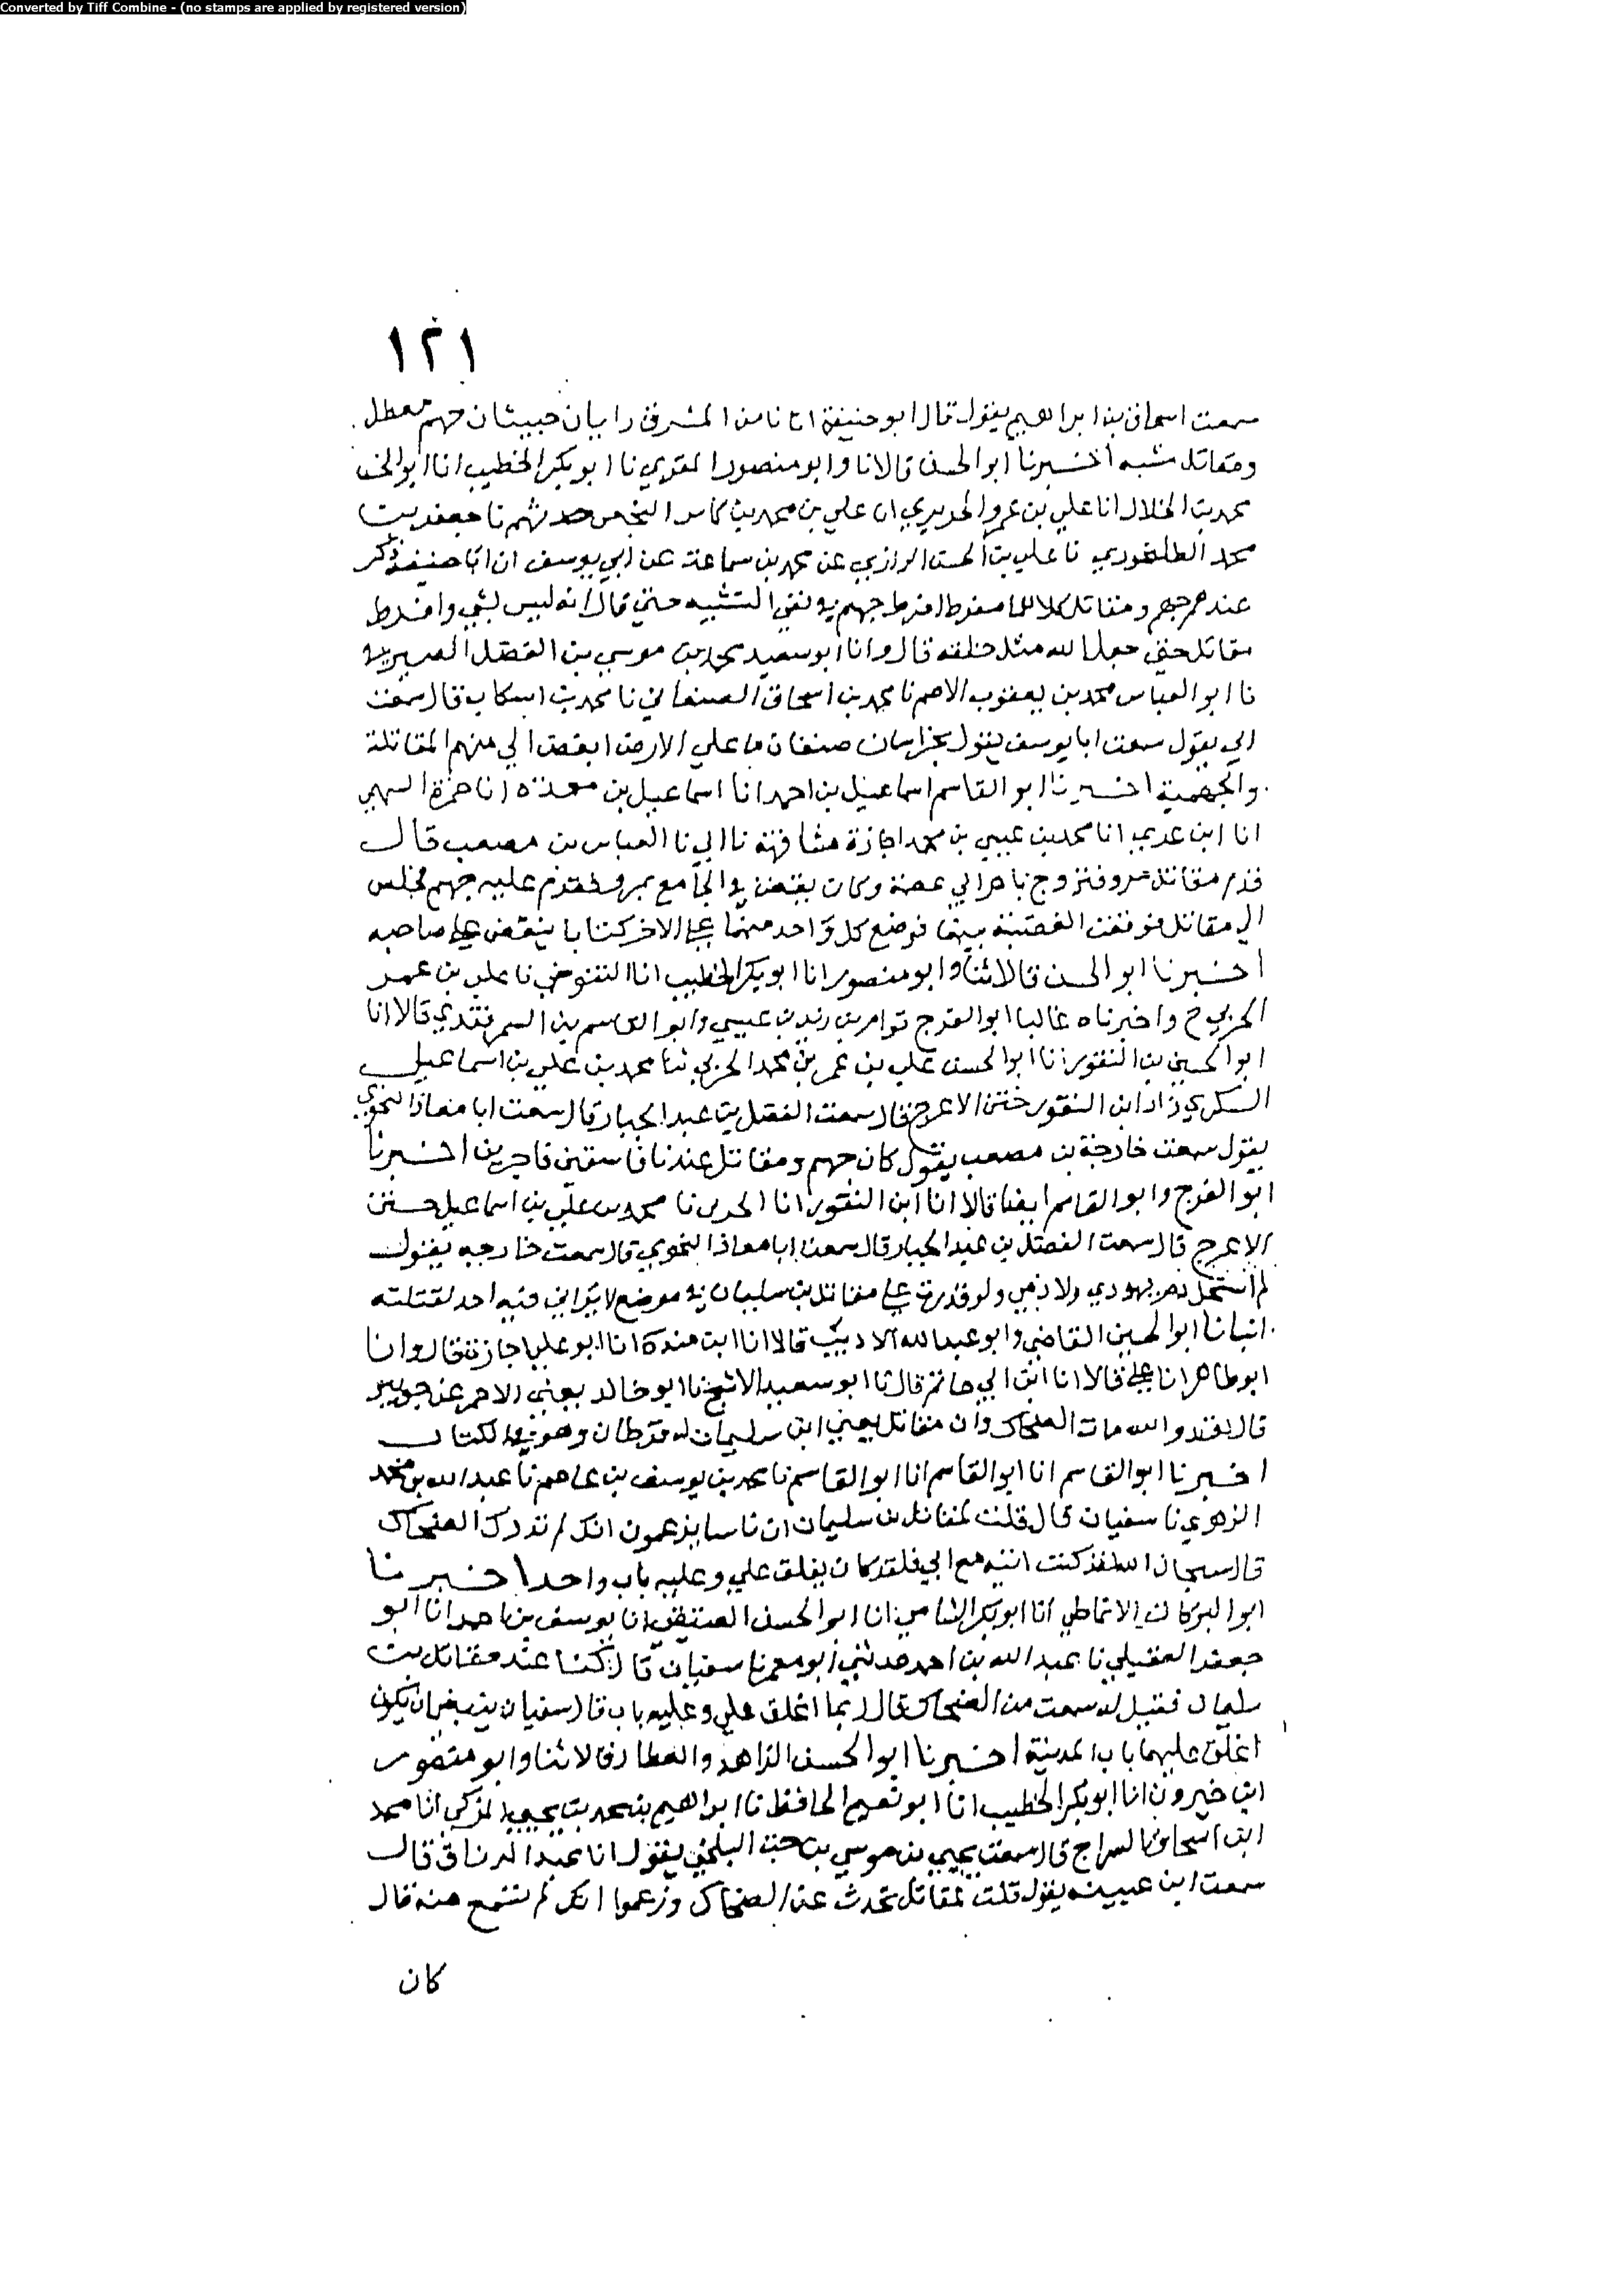 Converted by Tiff Combine - (no stamps are applied by registered version)
١٢١
سمعت اسحاق بن ابراهيم يقول قال ابو حنيفة اتانا من المشرق رايان خبيثان جهم معطل
ومقاتل مشبه اخبرنا ابو الحسن قالا نا وابو منصور المقري نا ابو بكر الخطيب انا ابو الحسن
محمد بن الخلال انا علي بن عمرو الحريري ان علي بن محمد بن كاس النخعي حدثهم نا جعفر بن
محمد نا علي بن الحسن الرازي عن محمد بن سماعة عن ابي يوسف ان ابا حنيفة ذكر
عنده جهم ومقاتل كلاهما مفرط افرط جهم في نفي التشبيه حتى قال انه ليس بشي وافرط
مقاتل حتى جعل الله مثل خلقه قال وانا ابو سعيد محمد بن موسى بن الفضل الصيرفي
نا ابو العباس محمد بن يعقوب الاصم نا محمد بن اسحاق الصغاني نا محمد بن اسكاب قال سمعت
ابي يقول سمعت ابا يوسف يقول بخراسان صنفان ما على الارض ابغض الي منهم المقاتلة
والجهمية اخبرنا ابو القاسم اسماعيل بن احمد انا اسماعيل بن مسعدة انا حمزة السهمي
انا ابن عدي انا محمد بن عيسى بن محمد اجازة مشافهة نا ابي نا العباس بن مصعب قال
قدم مقاتل مرو فتزوج بام ابي عصمة وكان يقص في الجامع بمرو فقدم عليه جهم فجلس
الى مقاتل فوقعت العصبية بينهما فوضع كل واحد منهما على الاخر كتابا ينقض على صاحبه
اخبرنا ابو الحسن قالا ثنا وابو منصور انا ابو بكر الخطيب انا التنوخي نا علي بن عمر
الحربي ح واخبرناه غالبا ابو الفرج قوام بن زيد بن عيسى وابو القاسم بن السمرقندي قالا انا
ابو الحسين بن النقور انا ابو الحسن علي بن عمر بن محمد الحربي ثنا محمد بن علي بن اسماعيل
السكري زاد ابن النقور ختن الاعرج قال سمعت الفضل بن عبد الجبار قال سمعت ابا معاذ النحوي
يقول سمعت خارجة بن مصعب يقول كان جهم ومقاتل عندنا فاسقين فاجرين اخبرنا
ابو الفرج وابو القاسم ايضا قالا انا ابن النقور انا الحربي نا محمد بن علي بن اسماعيل ختن
الاعرج قال سمعت الفضل بن عبد الجبار قال سمعت ابا معاذ النحوي قال سمعت خارجه يقول
لم استحل دم يهودي ولا ذمي ولو قدرت على مقاتل بن سليمان في موضع لا يراني فيه احد لقتلته
انبانا ابو الحسين القاضي وابو عبد الله الاديب قالا انا ابن مندة انا ابو علي اجازة قال وانا
ابو طاهر انا علي قالا انا ابن ابي حاتم قال نا ابو سعيد الاشج نا ابو خالد يعني الاحمر عن جويبر
قال لقد والله مات الضحاك وان مقاتل يعني ابن سليمان له قرطان وهو في الكتاب
اخبرنا ابو القاسم انا ابو القاسم انا ابو القاسم نا محمد بن يوسف بن عاصم نا عبد الله بن محمد
الزهري نا سفيان قال قلت لمقاتل بن سليمان ان ناسا يزعمون انك لم تدرك الضحاك
قال سبحان الله لقد كنت اتيه مع ابي فلقد كان يغلق علي وعليه باب واحد اخبرنا
ابو البركات الانماطي انا ابو بكر الشامي انا ابو الحسن العتيقي انا يوسف بن احمد انا ابو
جعفر العقيلي نا عبد الله بن احمد حدثني ابو معمر نا سفيان قال كنا عند مقاتل بن
سليمان فقيل له سمعت من الضحاك قال ربما اغلق علي وعليه باب قال سفيان ينبغي ان يكون
اغلق عليهما باب المدينة اخبرنا ابو الحسن الزاهد والعطار قالا ثنا وابو منصور
ابن خيرون انا ابو بكر الخطيب انا ابو نعيم الحافظ نا ابراهيم بن محمد بن يحيى المزكي انا محمد
ابن اسحاق السراج قال سمعت يحيى بن موسى بن خت البلخي يقول انا عبد الرزاق قال
سمعت ابن عيينه يقول قلت لمقاتل تحدث عن الضحاك وزعموا انك لم تسمع منه قال
كان